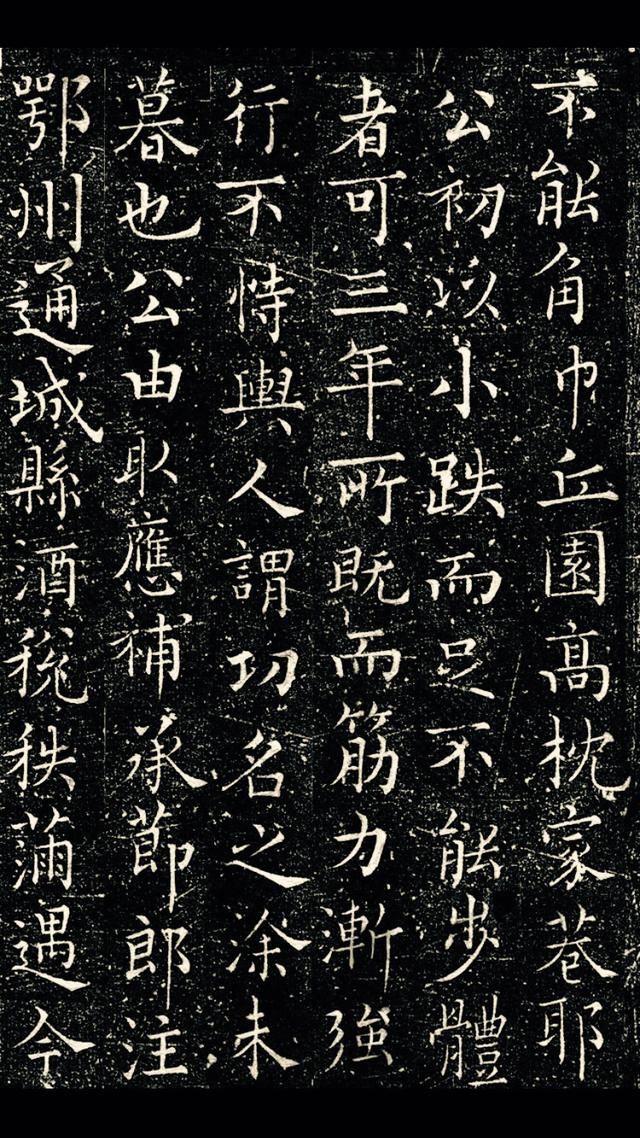 不能角巾丘園高枕家巷耶
公初以小跌而足不能步體
者可三年所既而筋力漸強
行不恃輿人謂功名之涂未
暮也公由取應補承節郎注
鄂州通城縣酒稅秩滿遇今